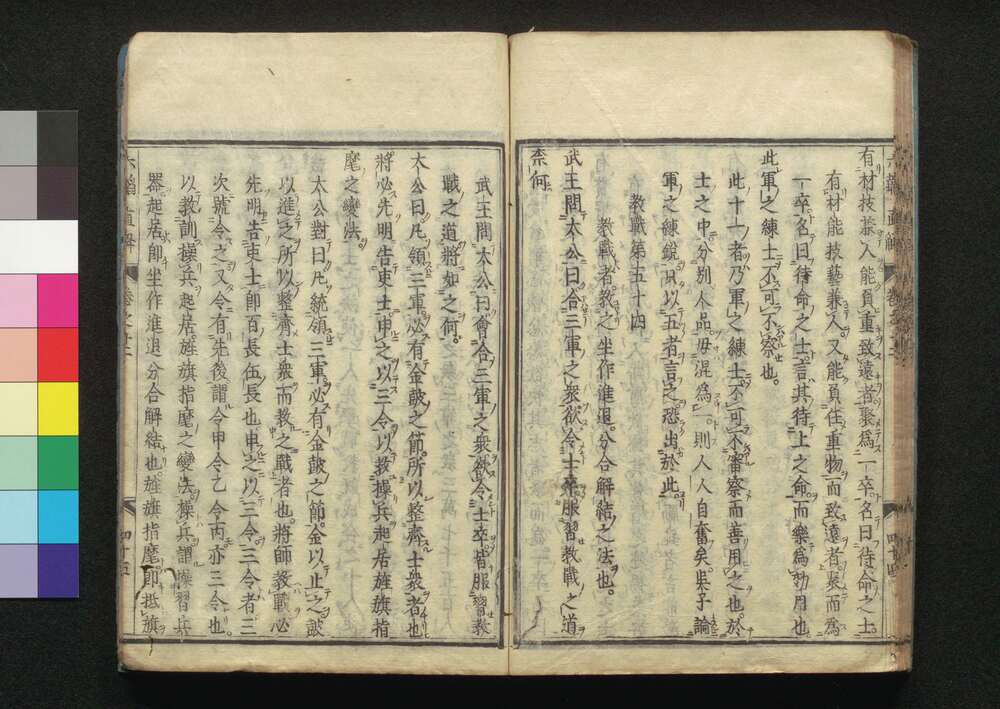 有材技兼人能負重致遠者聚爲一卒名曰待命之士
有材能技藝兼人又能負任重物而致遠者聚而爲
一卒名曰待命之士言其待上之命而樂爲効用也
此軍之練士不可不察也。
此十一者乃軍之練士不可不審察而善用之也於
士之中分別人品毋混爲一則人人自奮矣吳子論
軍之練銳但以五者言之恐出於此
教戰第五十四
教戰者教之坐作進退分合解結之法也。
武王問太公曰合三軍之衆欲令士卒服習教戰之道
柰何
武王問太公曰會合三軍之衆欲令士卒皆服習教
戰之道將如之何。
太公曰凡領三軍必有金鼓之節所以整齊士衆者也
將必先明告吏士申之以三令以教操兵起居旌旗指
麾之變法。
太公對曰凡統領三軍必有金鼓之節金以止之鼓
以進之所以整齊士衆而教之戰者也將師教戰必
先明告吏士卽百長伍長也申之以三令三令者三
次號令之又令有先後謂令甲令乙令丙亦三令也
以教訓操兵起居旌旗指麾之變法操兵謂操習兵
器起居卽坐作進退分合解結也旌旗指麾卽抵旗
六韜直解 卷之十二 四十五